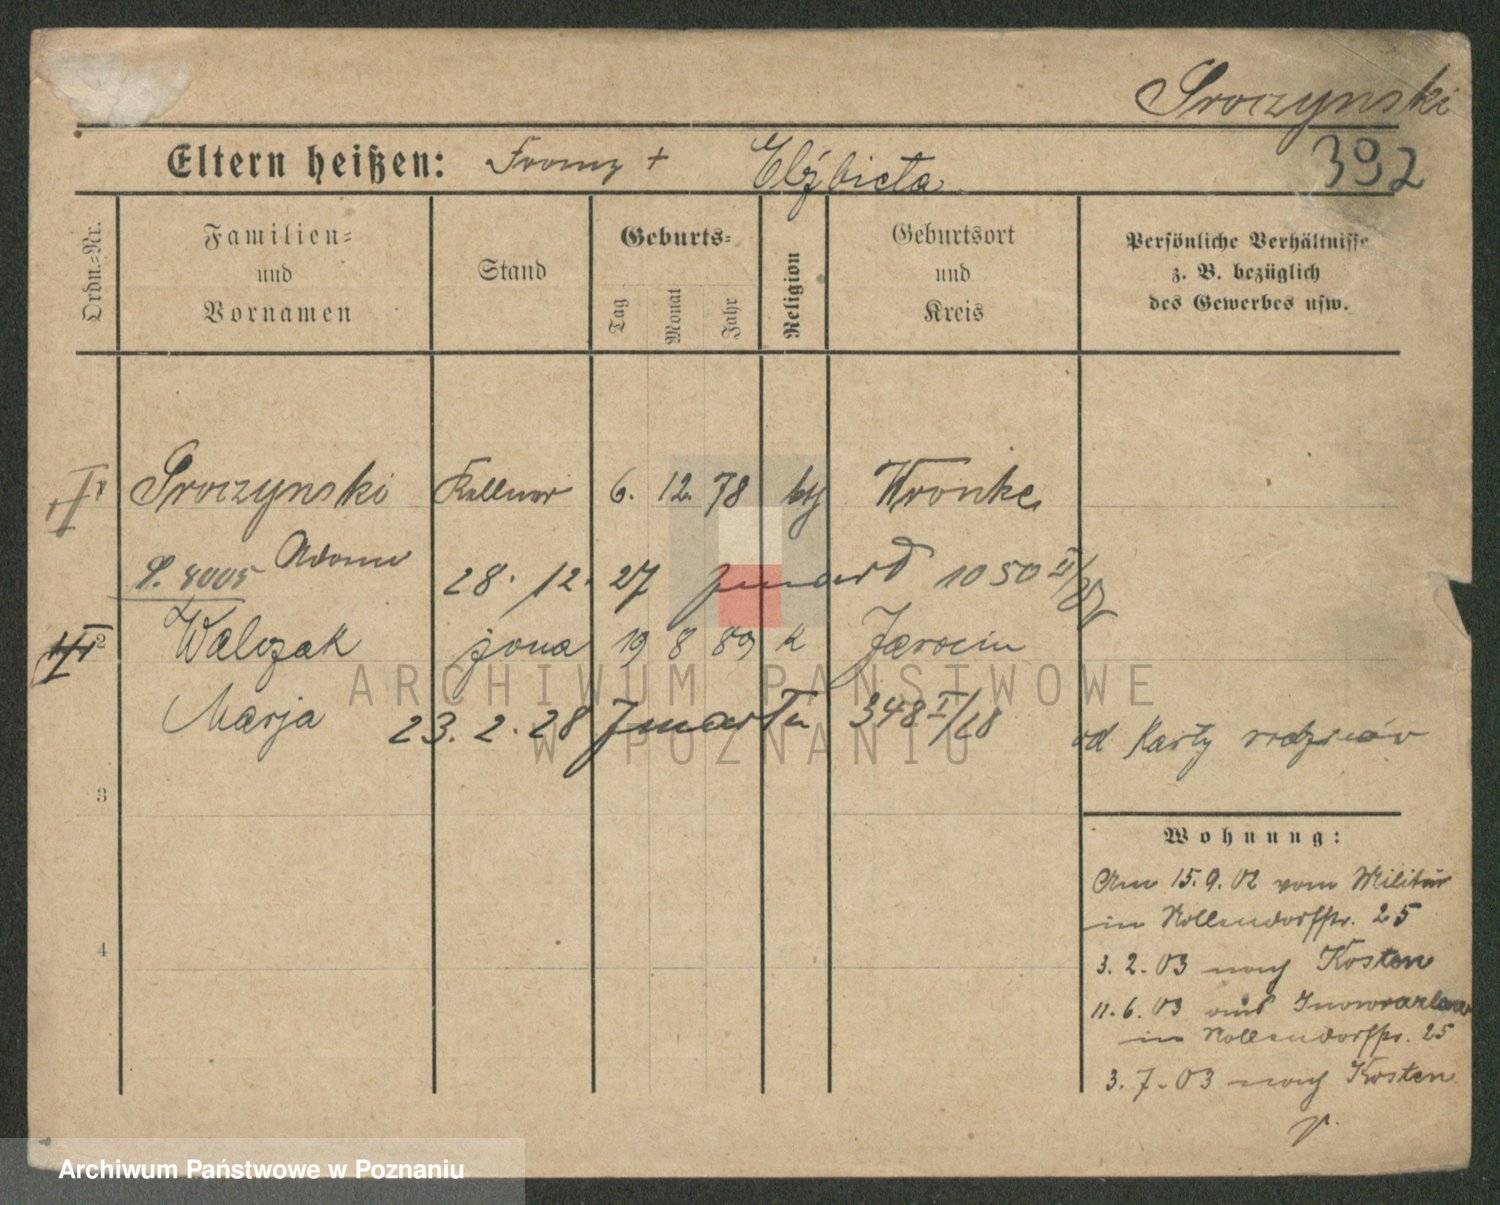 Sroczynski
392
Eltern heißen: Franz + Elżbieta
Ordn.-Nr.
Familien-
und
Vornamen
Stand
Geburts-
Tag
Monat
Jahr
Religion
Geburtsort
und
Kreis
Persönliche Verhältnisse
z. B. bezüglich
des Gewerbes usw.
1 Sroczynski Kellner 6. 12. 78 kth Wronke
Adam
S. 8005 28. 12. 27 zmarł 1050 II/27
2 Walczak żona 19 8 89 k Jarocin
Marja 23. 2. 28 zmarła 348 I/28
od Karty rodziców
3
4
Wohnung:
Am 15. 9. 02 vom Militär
in Nollendorfstr. 25
3. 2. 03 nach Kosten
11. 6. 03 aus Inowrazlaw
in Nollendorfstr. 25
3. 7. 03 nach Kosten
ARCHIWUM PAŃSTWOWE
W POZNANIU
Archiwum Państwowe w Poznaniu